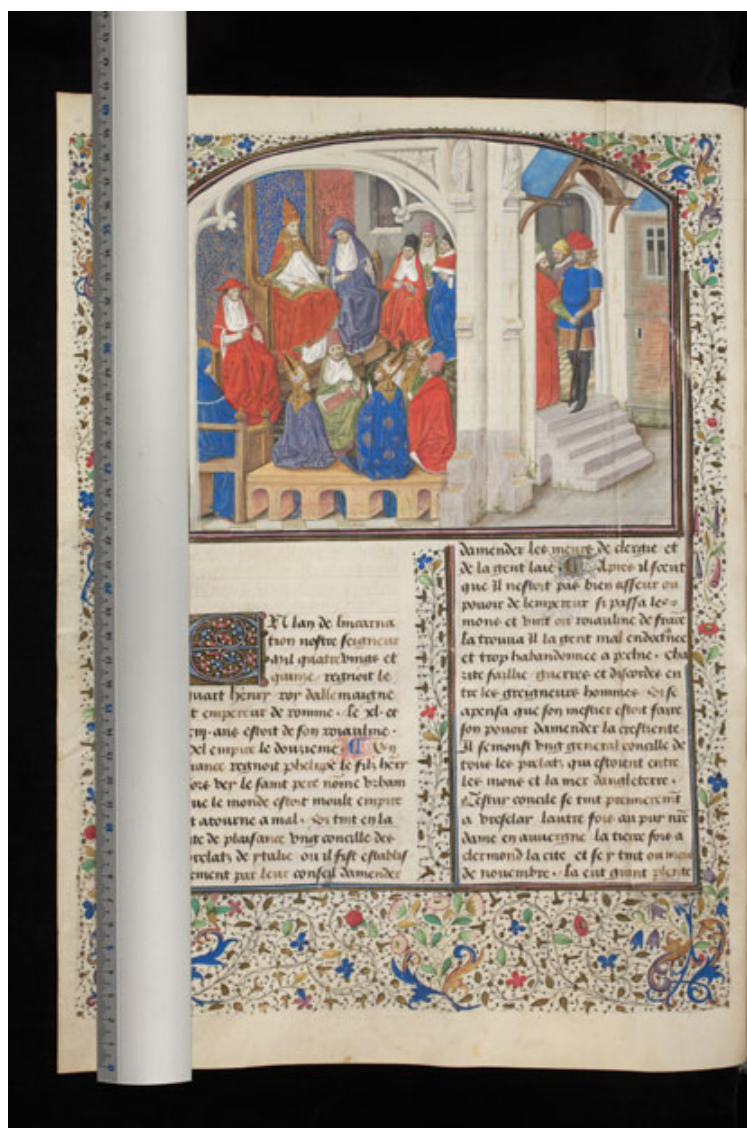 En lan de lincarna
tion nostre seigneur
mil quatre vings et
quinze regnoit le
quart henry roy dallemaigne
t empereur de romme . le xl . et
iij . ans estoit de son roiaulme .
del empire le douzieme En
france regnoit phelippe le filz henry
ors ver le saint pere nome vrbain
que le monde estoit moult empire
t atourne a mal . Si tint en la
te de plaisance vng concille des
relatz de ytalie ou il fist establiss
ement par leur conseil damender
damender les meurs de clergie et
de la gent laie . Apres il sceut
que Il nestoit pas bien asseur ou
pouoir de lempereur si passa les
mons et vint ou roiaulme de france
la trouua Il la gent mal endoctrinee
et trop habandonnee a pechie . cha
rite faillie guerres et discordes en
tre les greigneurs hommes . Si se
apensa que son mestier estoit faire
son pouoir damender la crestiente
Il semonst vng general concille de
tous les prelatz qui estoient entre
les mons et la mer dangleterre .
Cestui concile se tint premierement
a vreselay lautre fois au pui nre
dame en auuergne la tierce fois a
clermond la cite et se y tint ou mois
de nouembre . la eut grant plente